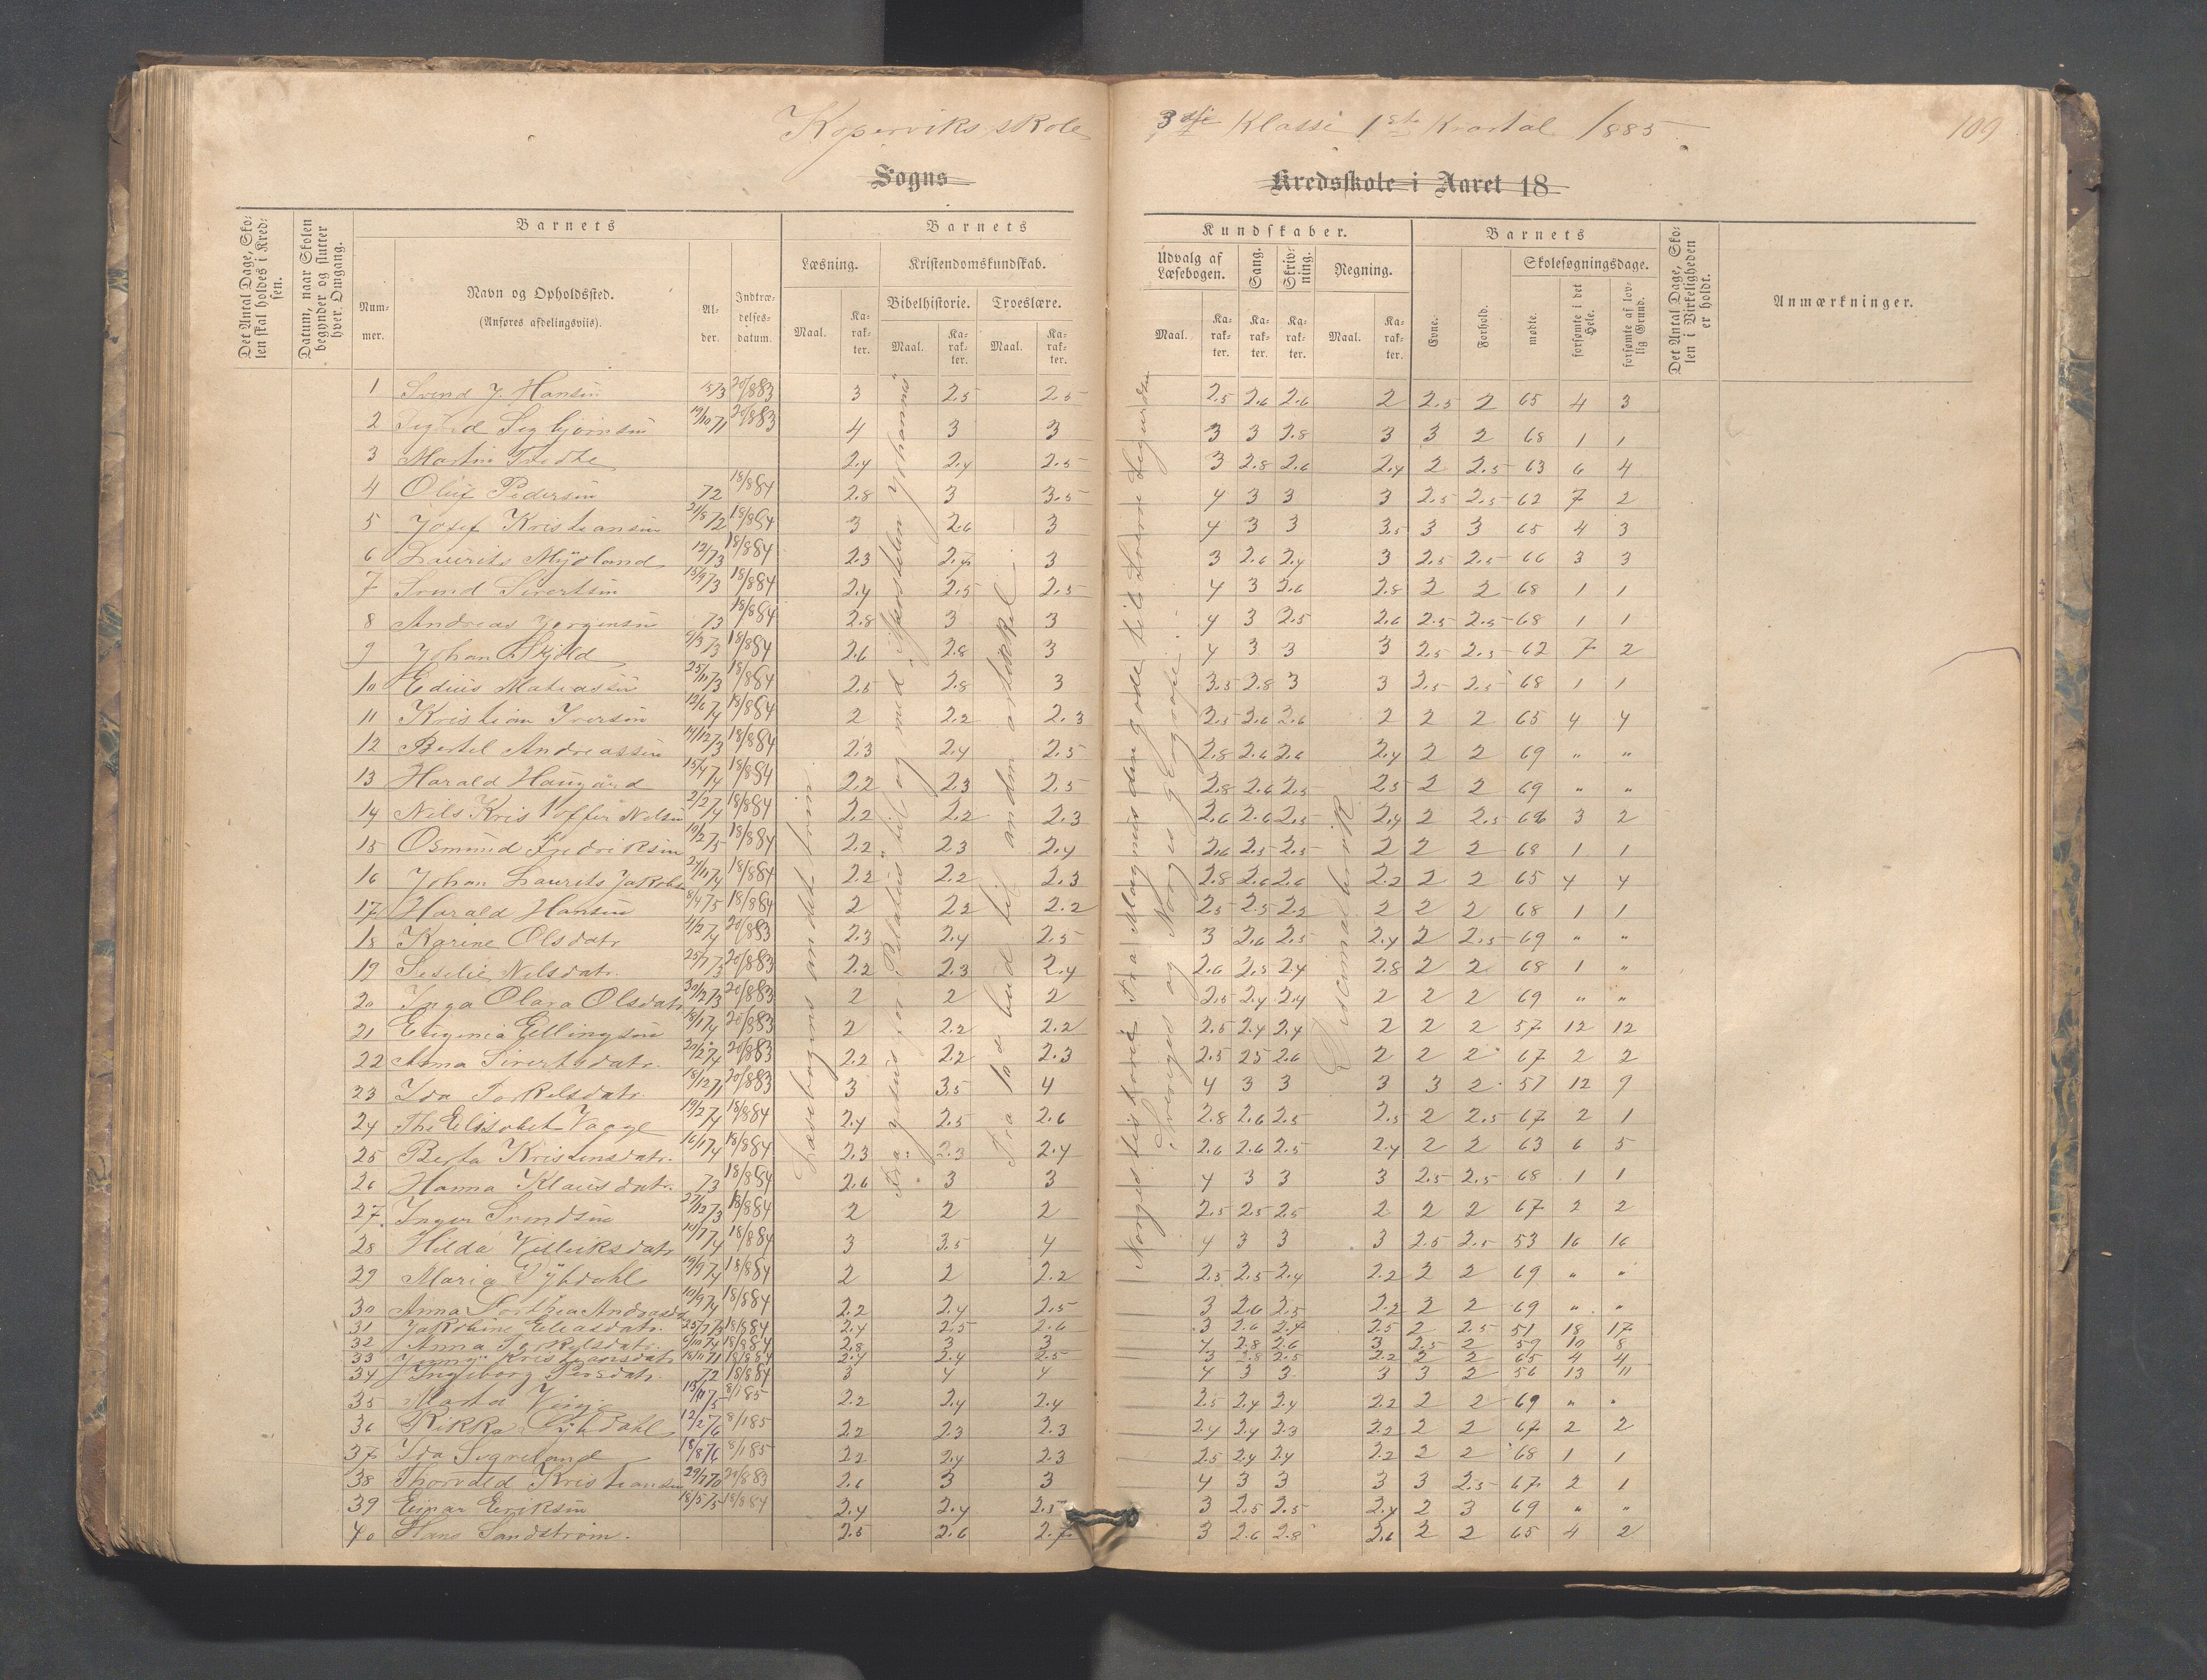 Koperviks skole 3die Klasse 1ste Kvartal 1885
109
Sogns Kredsskole i Aaret 18
Det Antal Dage, Skolen skal holdes i Kredsen.
Datum, naar Skolen begynder og slutter hver Omgang.
Barnets
Nummer.
Navn og Opholdssted.
(Anføres afdelingsviis).
Alder.
Indtrædelsesdatum.
Barnets
Læsning.
Maal.
Karakter.
Kristendomskundskab.
Bibelhistorie.
Maal.
Karakter.
Troeslære.
Maal.
Karakter.
Kundskaber.
Udvalg af Læsebogen.
Maal.
Karakter.
Sang.
Karakter.
Skrivning.
Karakter.
Regning.
Maal.
Karakter.
Barnets
Evne.
Forhold.
Skolesøgningsdage.
mødte.
forsømte i det Hele.
forsømte af lovlig Grund.
Det Antal Dage, Skolen i Virkeligheden er holdt.
Anmærkninger.
1 Svend J. Hansen 20/883 3 2.5 2.5 2.5 2.6 2.6 2 2.5 2 65 4 3
2 Sigbjørnsen 19/10 71 20/883 4 3 3 3 3 2.8 3 3 2 68 1 1
3 Martin 2.4 2.4 2.5 3 2.8 2.6 2.4 2 2.5 63 6 4
4 Oluf Pedersen 72 18/884 2.8 3 3.5 4 3 3 3 2.5 2.5 62 7 2
5 Josef Kristiansen 21/8 72 18/884 3 2.6 3 4 3 3 3.5 3 3 65 4 3
6 Laurits Myøland 18/884 2.3 2.4 3 3 2.6 2.4 3 2.5 2.5 66 3 3
7 Svend Sivertsen 18/884 2.4 2.5 2.5 4 3 2.6 2.8 2 2 68 1 1
8 Andreas Jørgensen 73 18/884 2.8 3 3 4 3 2.5 2.6 2.5 2.5 68 1 1
9 Johan Skjold 18/884 2.6 2.8 3 4 3 3 3 2.5 2.5 62 7 2
10 Edius Matiassen 25/11 73 18/884 2.5 2.8 3 3.5 2.8 3 3 2.5 2.5 68 1 1
11 Kristian Iversen 12/6 74 18/884 2 2.2 2.3 2.5 2.6 2.6 2 2 2 65 4 4
12 Bertel Andreassen 14/12 73 18/884 2.3 2.4 2.5 2.8 2.6 2.6 2.4 2 2 69 " "
13 Harald Haugård 15/4 74 18/884 2.2 2.3 2.5 2.8 2.6 2.5 2.5 2 2 69 " "
14 Nils Kristoffer Nilsen 2/2 74 18/884 2.2 2.2 2.3 2.6 2.6 2.5 2.4 2 2.5 66 3 2
15 Osmund Fredriksen 18/884 2.2 2.3 2.4 2.6 2.5 2.5 2 2 2 68 1 1
16 Johan Laurits Jakobsen 18/884 2.2 2.2 2.3 2.8 2.6 2.6 2.2 2 2 65 4 4
17 Harald Hansen 8/4 75 18/884 2 2.2 2.2 2.5 2.5 2.2 2 2 2 68 1 1
18 Karine Olsdatr 20/883 2.3 2.4 2.5 3 2.6 2.5 2.4 2 2.5 69 " "
19 Seselie Nilsdatr. 25/7 73 20/883 2.2 2.3 2.4 2.6 2.5 2.4 2.8 2 2 68 1 "
20 Inga Olava Olsdatr 30/12 73 20/883 2 2 2 2.5 2.4 2.4 2 2 2 69 " "
21 Eugenia Ellingsen 18/1 74 20/883 2 2.2 2.2 2.5 2.4 2.4 2 2 2 57 12 12
22 Anna Sivertsdatr. 20/2 74 20/883 2.2 2.2 2.3 2.5 2.5 2.6 2 2 2 67 2 2
23 Ida Torkelsdatr. 18/12 71 20/883 3 3.5 4 4 3 3 3 3 2 57 12 9
24 Th. Elisabet Vaage 19/2 74 18/884 2.4 2.5 2.6 2.8 2.6 2.5 2.5 2 2.5 67 2 1
25 Berta Kristensdatr. 16/1 74 18/884 2.3 2.3 2.4 2.6 2.6 2.5 2.4 2 2 63 6 5
26 Hanna Klausdatr. 73 18/884 2.6 3 3 4 3 3 3 2.5 2.5 68 1 1
27 Inger Svendsen 27/12 73 18/884 2 2 2 2.5 2.5 2.5 2 2 2 67 2 2
28 Hilda Villiksdatr 10/7 74 18/884 3 3.5 4 4 3 3 3 2.5 2.5 53 16 16
29 Maria Dybdahl 19/9 74 18/884 2 2 2.2 2.5 2.5 2.4 2.2 2 2 69 " "
30 Anna Dorthea Andreasdr 10/9 74 18/884 2.2 2.4 2.5 3 2.6 2.5 2.2 2 2 69 " "
31 Jakobine Eliasdatr. 25/7 73 18/884 2.4 2.5 2.6 3 2.6 2.4 2.5 2 2.5 51 18 17
32 Anna Torkelsdatr. 6/10 74 18/884 2.8 3 3 4 2.8 2.6 3 2.5 2 59 10 8
33 Jenny Kristiansdatr 18/11 71 18/884 2.4 2.4 2.5 3 2.8 2.5 2.2 2 2 65 4 4
34 Ingeborg Persdatr. 72 18/884 3 4 4 4 3 3 3 3 2 56 13 11
35 Marta 8/185 2.2 2.4 2.4 2.5 2.4 2.4 2.2 2 2 69 " "
36 Rikka Dybdahl 12/2 76 8/185 2.2 2.3 2.3 2.4 2.4 2.3 2.2 2 2 67 2 2
37 Ida Sigveland 18/8 76 8/185 2.2 2.4 2.3 2.5 2.4 2.4 2.2 2 2 68 1 1
38 Thorvald Kristiansen 29/1 70 20/883 2.6 3 3 4 3 3 3 3 2.5 67 2 1
39 Einar Eriksen 18/5 75 18/884 2.4 2.4 2.5 3 2.5 2.5 2.4 2 3 69 " "
40 Hans Sandstrøm. 2.5 2.6 2.7 3 2.6 2.8 2.6 2 2 65 4 2
Læsebogens andet trin
Fra "Jesus for Pilatus" til og med "Apostelen Johannes"
Fra 10de bud til anden artikkel.
Norges historie fra Magnus den gode til Sverre Sigurdsen
Sveriges og Norges geografi.